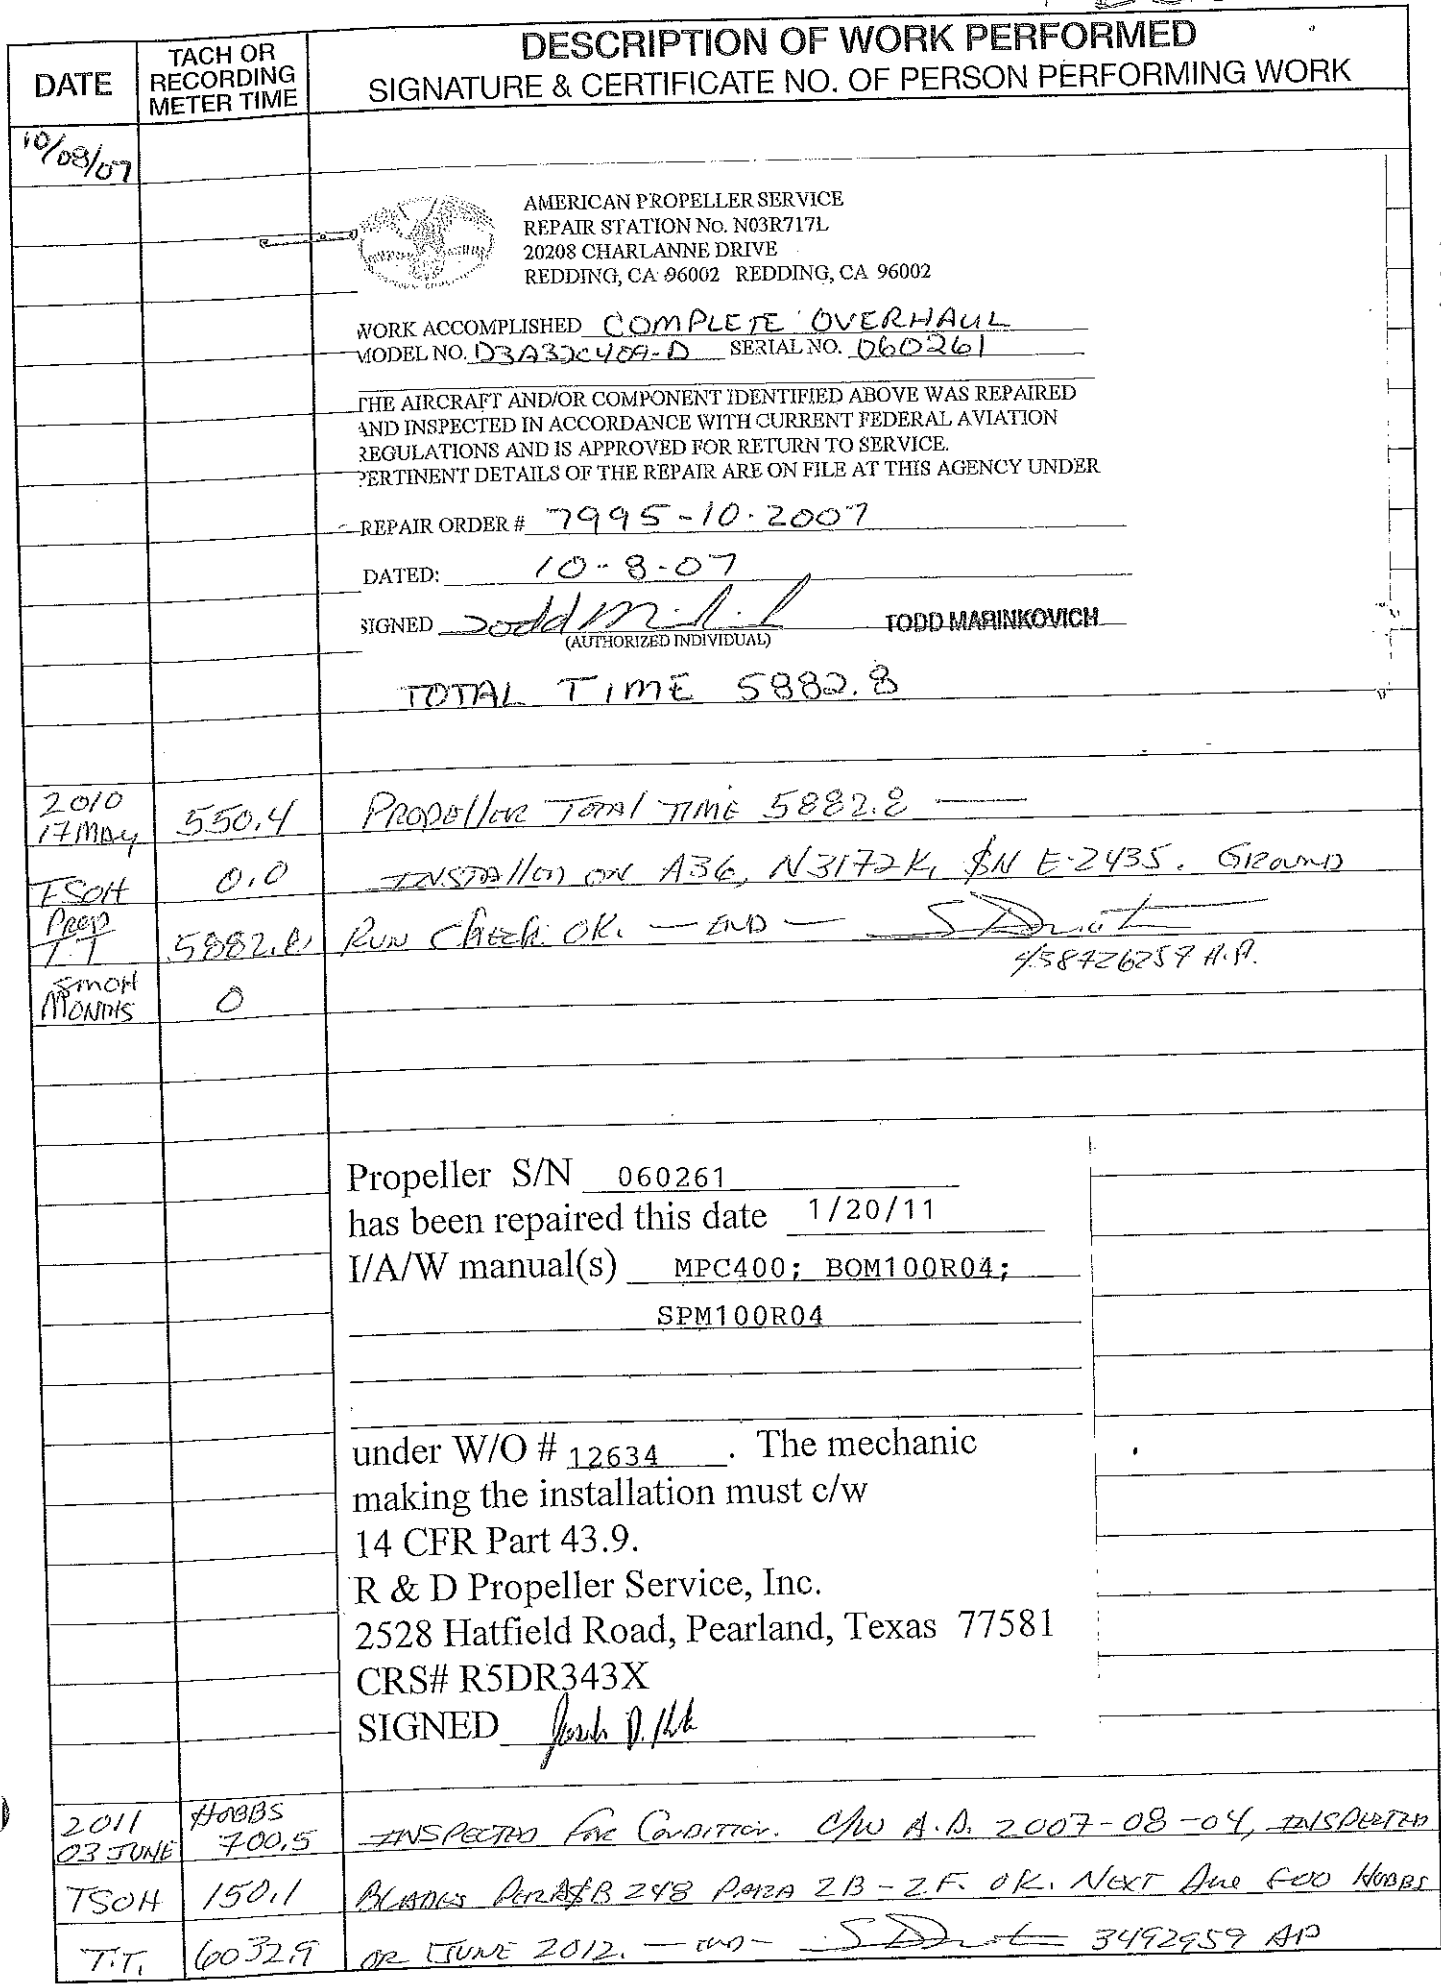 DATE
TACH OR
RECORDING
METER TIME
DESCRIPTION OF WORK PERFORMED
SIGNATURE & CERTIFICATE NO. OF PERSON PERFORMING WORK
10/08/07
AMERICAN PROPELLER SERVICE
REPAIR STATION No. N03R717L
20208 CHARLANNE DRIVE
REDDING, CA 96002 REDDING, CA 96002
WORK ACCOMPLISHED COMPLETE OVERHAUL
MODEL NO. D3A32C409-D SERIAL NO. 060261
THE AIRCRAFT AND/OR COMPONENT IDENTIFIED ABOVE WAS REPAIRED
AND INSPECTED IN ACCORDANCE WITH CURRENT FEDERAL AVIATION
REGULATIONS AND IS APPROVED FOR RETURN TO SERVICE.
PERTINENT DETAILS OF THE REPAIR ARE ON FILE AT THIS AGENCY UNDER
REPAIR ORDER # 7995-10-2007
DATED: 10-8-07
SIGNED TODD MARINKOVICH
(AUTHORIZED INDIVIDUAL)
TOTAL TIME 5882.8
2010
17 MAY 550.4 PROPELLER TOTAL TIME 5882.8 —
TSOH 0.0 INSTALLED ON A36, N3172K, S/N E-2435. GROUND
PROP
T.T 5882.8 RUN CHECK OK. — END —
458726259 A.P.
SMOH
MONTHS 0
Propeller S/N 060261
has been repaired this date 1/20/11
I/A/W manual(s) MPC400; BOM100R04;
SPM100R04
under W/O # 12634. The mechanic
making the installation must c/w
14 CFR Part 43.9.
R & D Propeller Service, Inc.
2528 Hatfield Road, Pearland, Texas 77581
CRS# R5DR343X
SIGNED
2011
03 JUNE HOBBS
700.5 INSPECTED FOR CONDITION. C/W A.D. 2007-08-04, INSPECTED
TSOH 150.1 BLADES PER ASB 248 PARA 2B-2F. OK. NEXT DUE HOBBS
T.T. 6032.9 OR JUNE 2012. — END — 3492959 AP